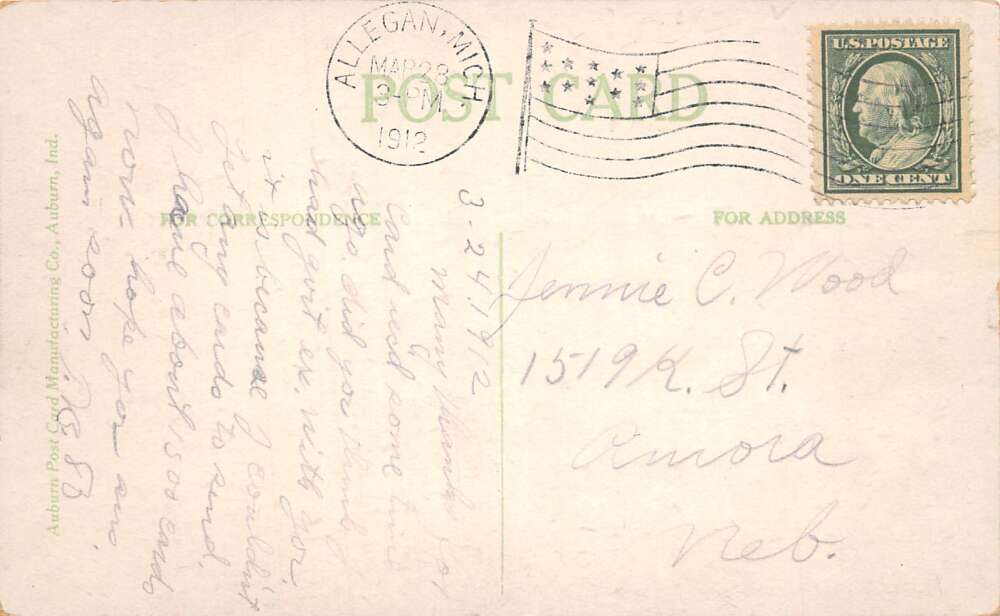 ALLEGAN, MICH
MAR 28
3-PM
1912
POST CARD
U.S. POSTAGE
ONE CENT
FOR CORRESPONDENCE
FOR ADDRESS
3-24 1912
Many thanks for
Card recd some time
ago. did you think I
had quit ex. with you.
it is because I couldn't
get any cards to send.
I have about 500 cards
now. hope you ans.
again soon.
Jennie C. Wood
1519 K. St.
Neb.
Auburn Post Card Manufacturing Co., Auburn, Ind.